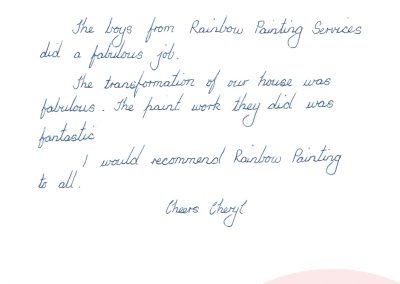 The boys from Rainbow Painting Services
did a fabulous job.
The transformation of our house was
fabulous. The paint work they did was
fantastic
I would recommend Rainbow Painting
to all.
Cheers Cheryl